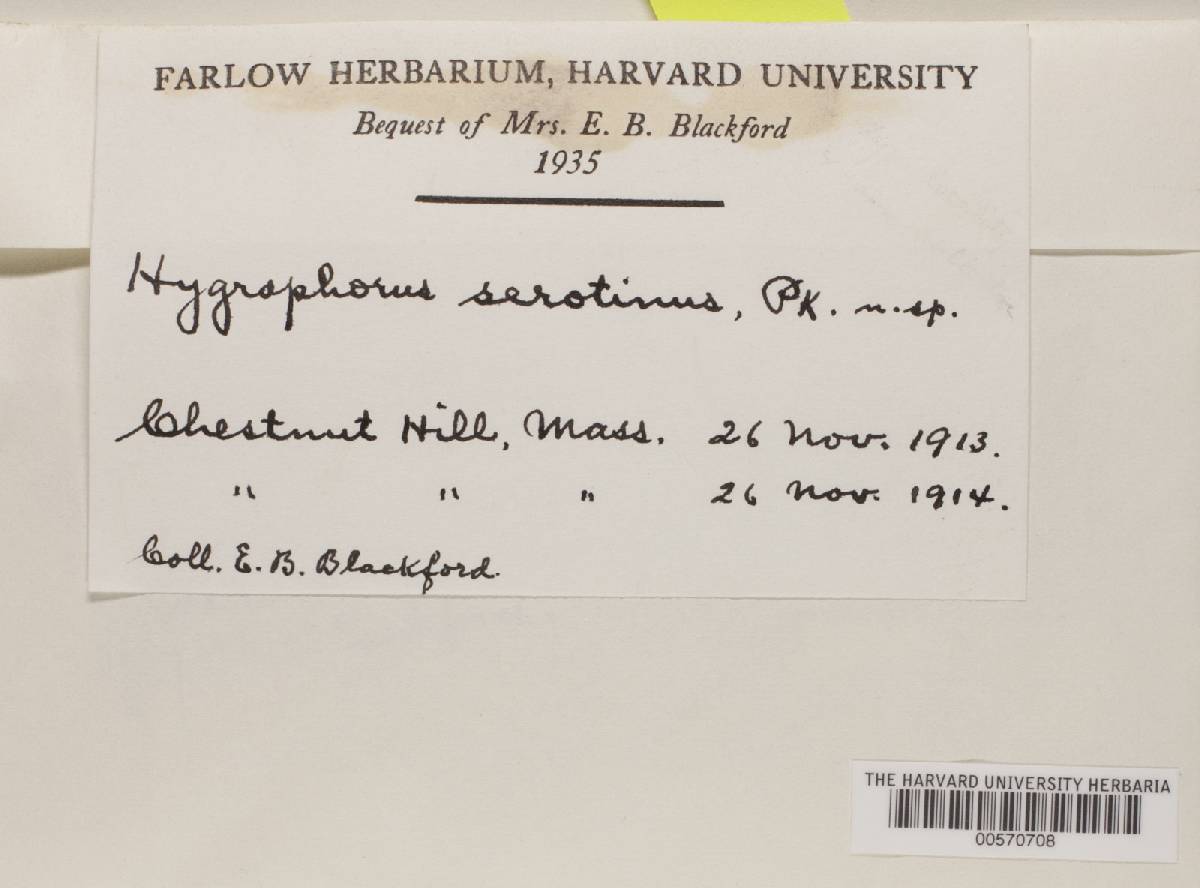 FARLOW HERBARIUM, HARVARD UNIVERSITY
Bequest of Mrs. E. B. Blackford
1935
Hygrophorus serotinus, Pk. n.sp.
Chestnut Hill, Mass. 26 Nov. 1913.
" " " 26 Nov. 1914.
Coll. E. B. Blackford.
THE HARVARD UNIVERSITY HERBARIA
00570708